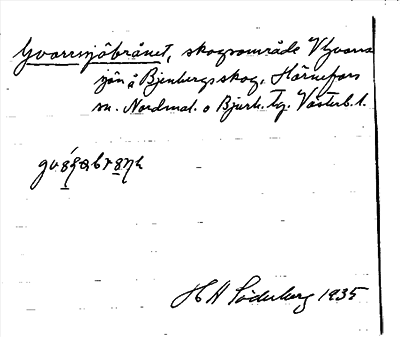 Gvarnsjöbrånet, skogsområde V Gvarn
sjön å Bjenbergs skog, Hörnefors
sn. Nordmal. o Bjurh. tg. Västerb. l.
H A Söderberg 1935